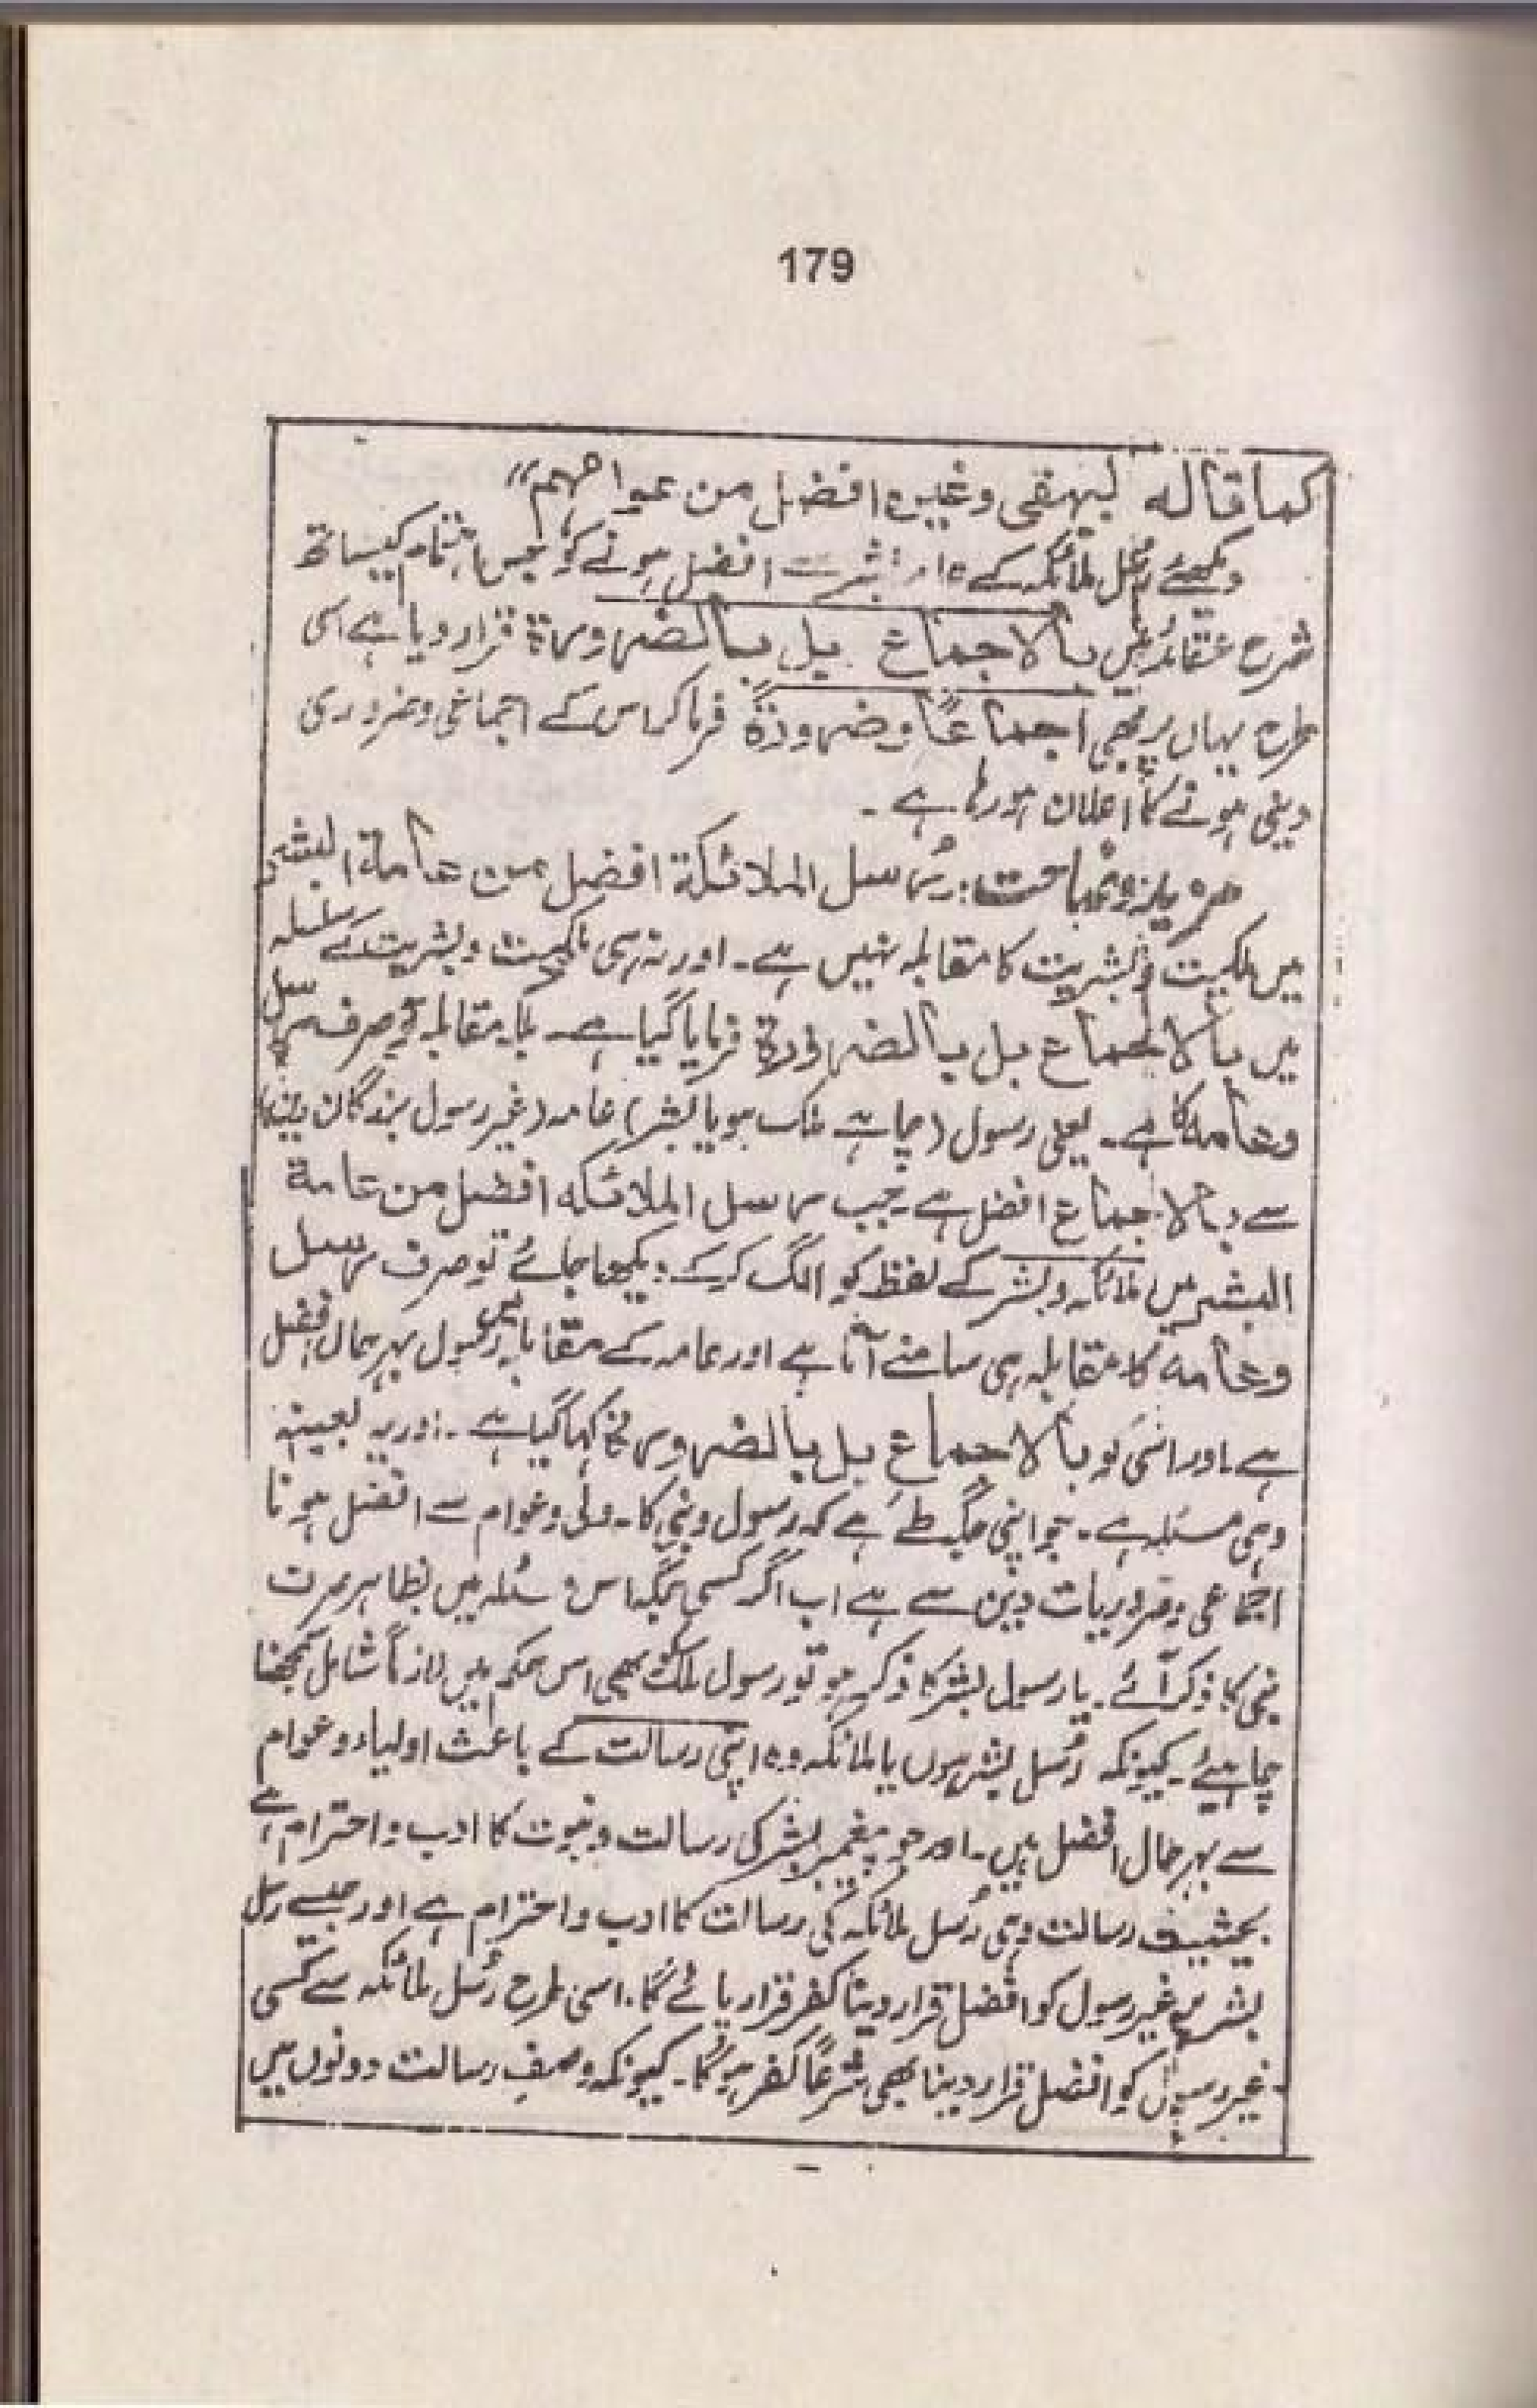 179
كما قاله البيهقي وغيره افضل من عوامهم"
دیکھئے رسل ملائکہ کے عامہ بشر سے افضل ہونے کو جس اہتمام کیساتھ
شرح عقائد میں بالاجماع بل بالضرورة قرار دیا ہے اسی
طرح یہاں پر بھی اجماعاً وضرورةً فرما کر اس کے اجماعی وضروری
دینی ہونے کا اعلان ہو رہا ہے ۔
مزید وضاحت: رُسل الملائكة افضل من عامة البشر
میں ملکیت و بشریت کا مقابلہ نہیں ہے ۔ اور نہ ہی ملکیت و بشریت کے سلسلہ
میں بالاجماع بل بالضرورة فرمایا گیا ہے ۔ بلکہ مقابلہ تو صرف رسل
وعامہ کا ہے ۔ یعنی رسول (چاہے ملک ہو یا بشر) عامہ (غیر رسول بندگان
سے بالاجماع افضل ہے ۔ جب رسل الملائکہ افضل من عامة
البشر میں ملائکہ و بشر کے لفظ کو الگ کر کے دیکھا جائے تو صرف رسل
وعامہ کا مقابلہ ہی سامنے آتا ہے اور عامہ کے مقابلہ میں رسول بہر حال افضل
ہے ۔ اور اسی کو بالاجماع بل بالضرورة کہا گیا ہے ۔ اور یہ بعینہ
وہی مسئلہ ہے ۔ جو اپنی جگہ طے ہے کہ رسول و نبی کا ۔ ولی و عوام سے افضل ہونا
اجماعی و ضروریات دین سے ہے اب اگر کسی جگہ اس مسئلہ میں بظاہر صرف
نبی کا ذکر آئے ۔ یا رسول بشر کا ذکر ہو تو رسول ملک بھی اس حکم میں لازماً شامل سمجھنا
چاہیئے ۔ کیونکہ رُسل بشر ہوں یا ملائکہ وہ اپنی رسالت کے باعث اولیاء و عوام
سے بہر حال افضل ہیں ۔ اور جو پیغمبر بشر کی رسالت و نبوت کا ادب و احترام ہے
بحیثیت رسالت وہی رُسل ملائکہ کی رسالت کا ادب و احترام ہے اور جیسے رسل
بشر پر غیر رسول کو افضل قرار دینا کفر قرار پائے گا ۔ اسی طرح رُسل ملائکہ سے کسی
غیر رسول کو افضل قرار دینا بھی شرعاً کفر ہو گا ۔ کیونکہ وصفِ رسالت دونوں میں